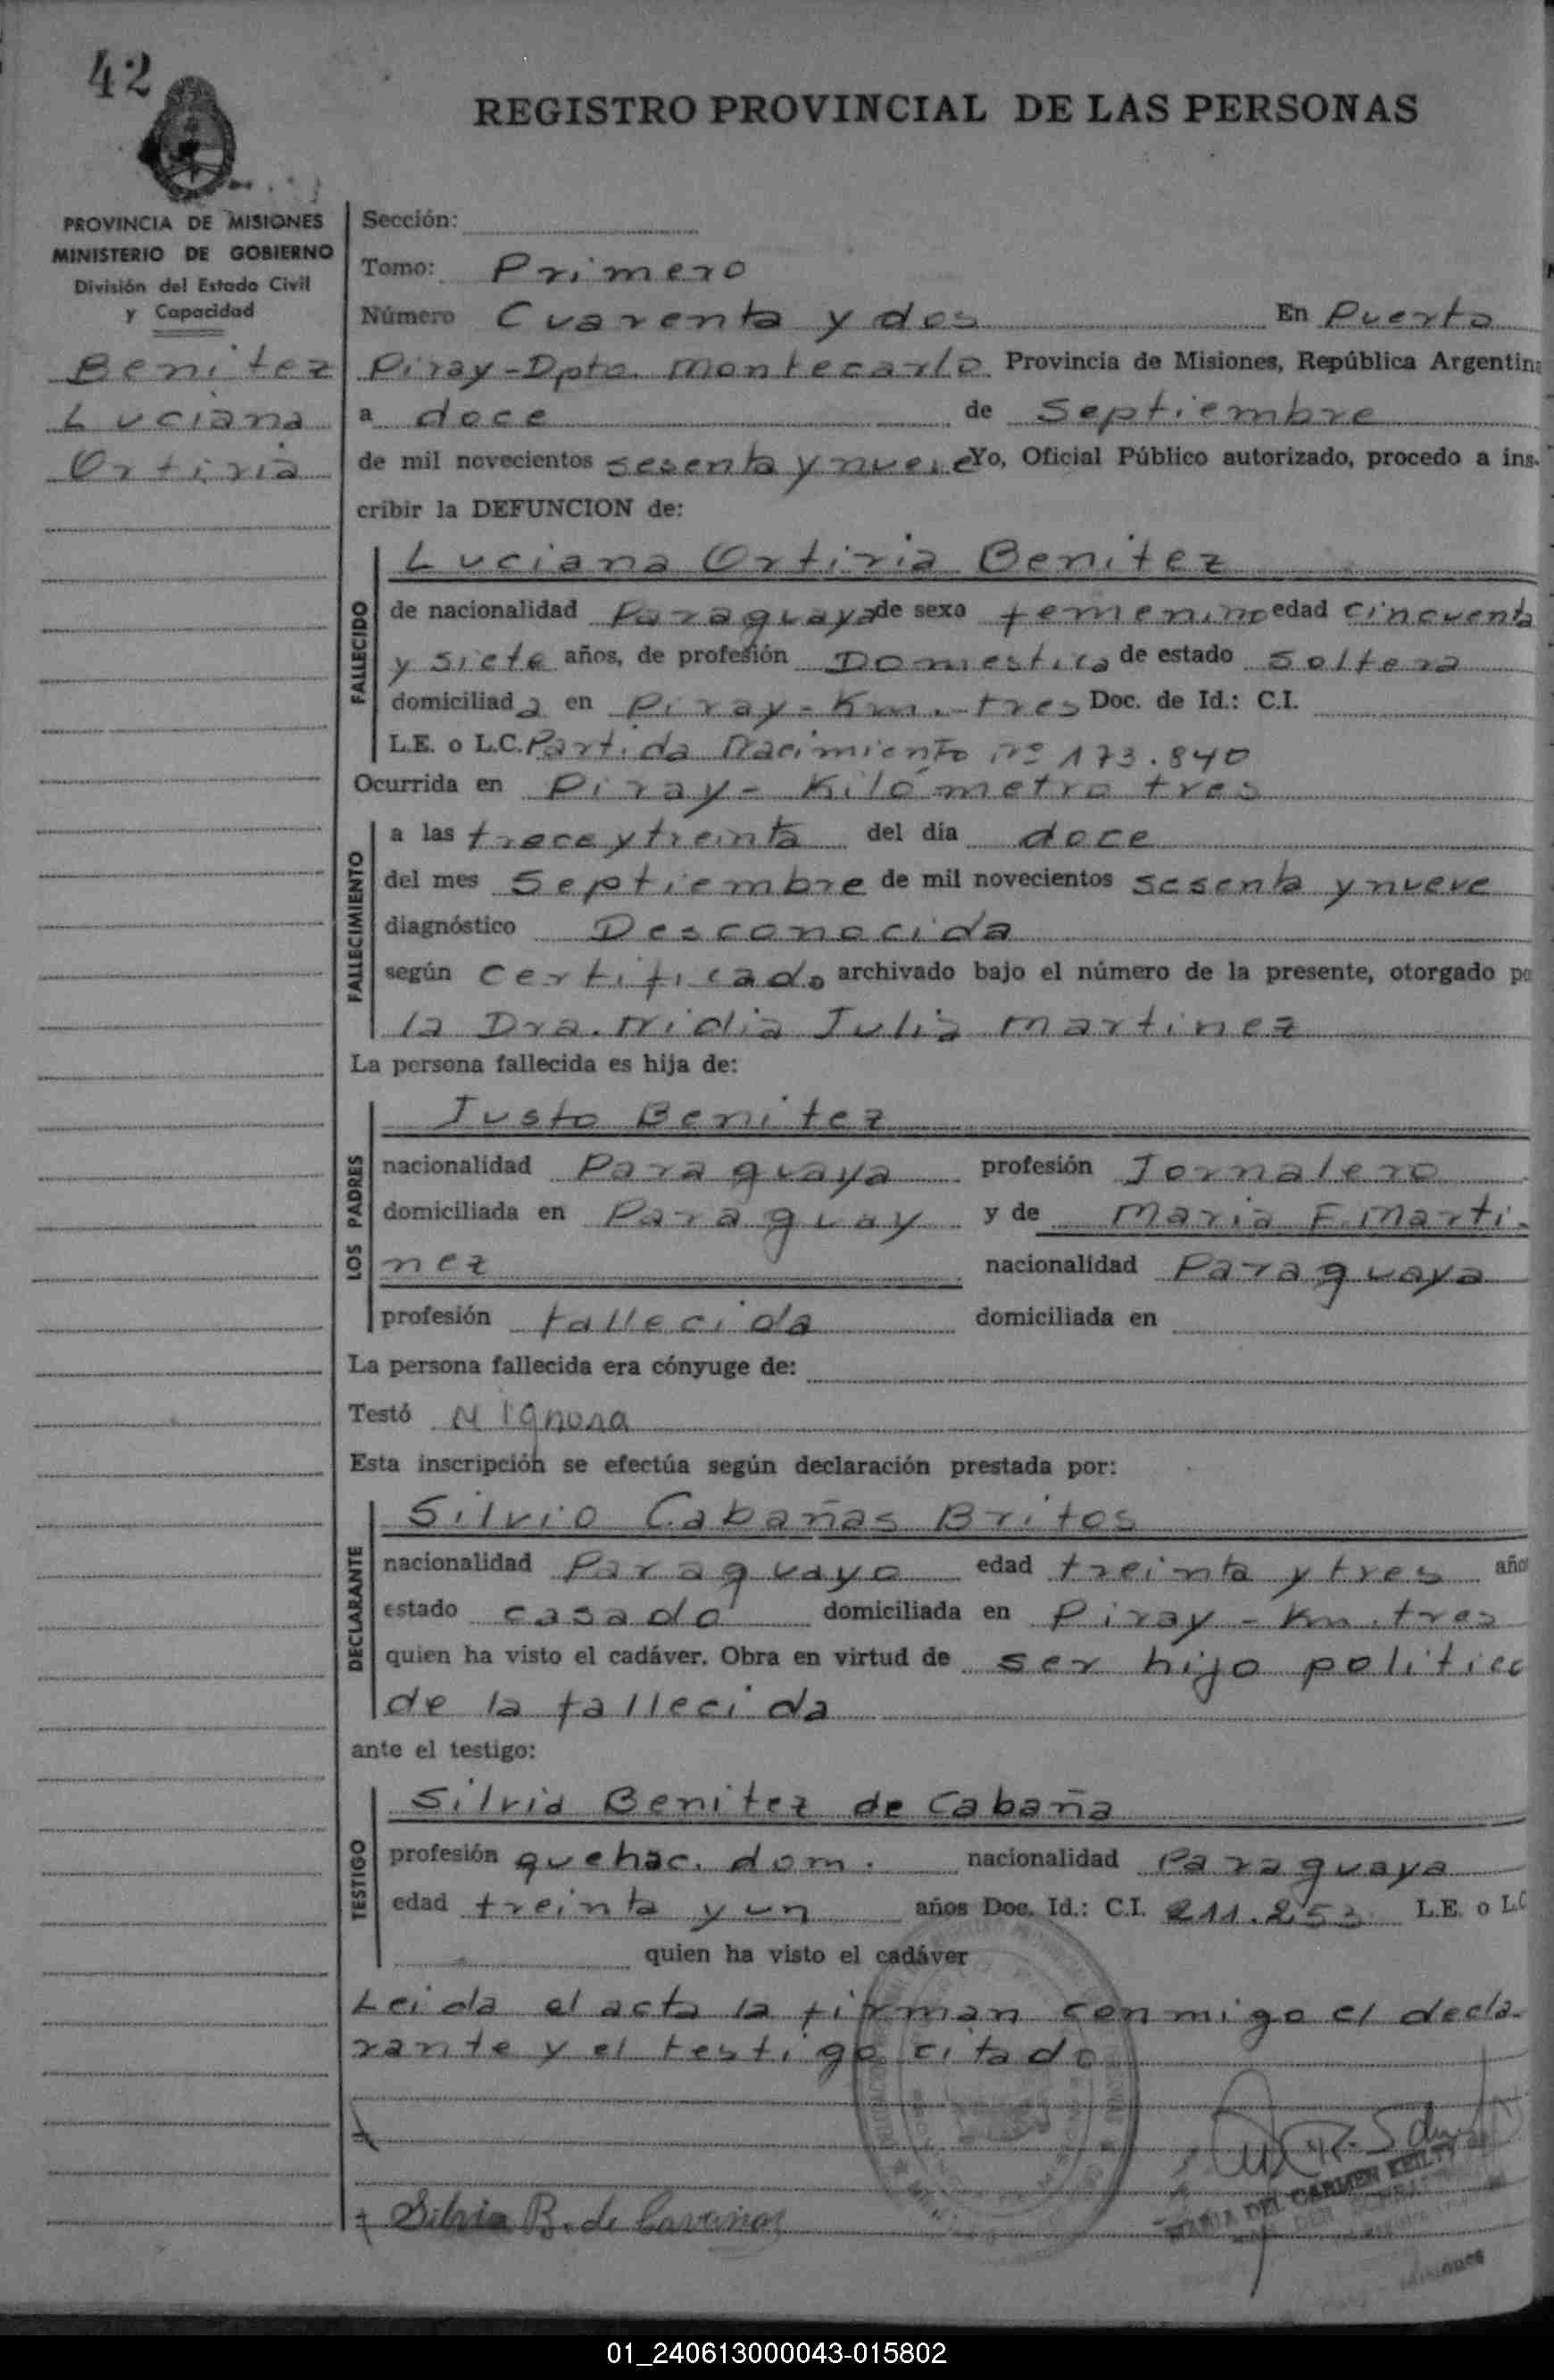 42
REGISTRO PROVINCIAL DE LAS PERSONAS
PROVINCIA DE MISIONES
MINISTERIO DE GOBIERNO
División del Estado Civil
y Capacidad
Benitez
Luciana
Ortiria
Sección:
Tomo: Primero
Número Cuarenta y dos En Puerto
Piray-Dpto. Montecarlo Provincia de Misiones, República Argentina
a doce de Septiembre
de mil novecientos sesenta y nueve Yo, Oficial Público autorizado, procedo a ins-
cribir la DEFUNCION de:
FALLECIDO
Luciana Ortiria Benitez
de nacionalidad Paraguaya de sexo femenino edad cincuenta
y siete años, de profesión Domestica de estado soltera
domiciliada en Piray-Km.-tres Doc. de Id.: C.I.
L.E. o L.C. Partida Nacimiento nº 173.840
Ocurrida en Piray- Kilómetro tres
FALLECIMIENTO
a las trece y treinta del día doce
del mes Septiembre de mil novecientos sesenta y nueve
diagnóstico Desconocida
según Certificado archivado bajo el número de la presente, otorgado po
la Dra. Nidia Julia Martinez
La persona fallecida es hija de:
LOS PADRES
Justo Benitez
nacionalidad Paraguaya profesión Jornalero
domiciliada en Paraguay y de Maria F. Marti-
nez nacionalidad Paraguaya
profesión fallecida domiciliada en
La persona fallecida era cónyuge de:
Testó Ignora
Esta inscripción se efectúa según declaración prestada por:
DECLARANTE
Silvio Cabañas Britos
nacionalidad Paraguayo edad treinta y tres año
estado casado domiciliada en Piray-Km.tres
quien ha visto el cadáver. Obra en virtud de ser hijo politico
de la fallecida
ante el testigo:
TESTIGO
Silvia Benitez de Cabaña
profesión quehac. dom. nacionalidad Paraguaya
edad treinta y un años Doc. Id.: C.I. 211.253 L.E. o L.C
quien ha visto el cadáver
Leida el acta la firman conmigo el decla-
rante y el testigo citado
Silvia B. de Cavañas
MARIA DEL CARMEN KEILTY
Misiones
01_240613000043-015802